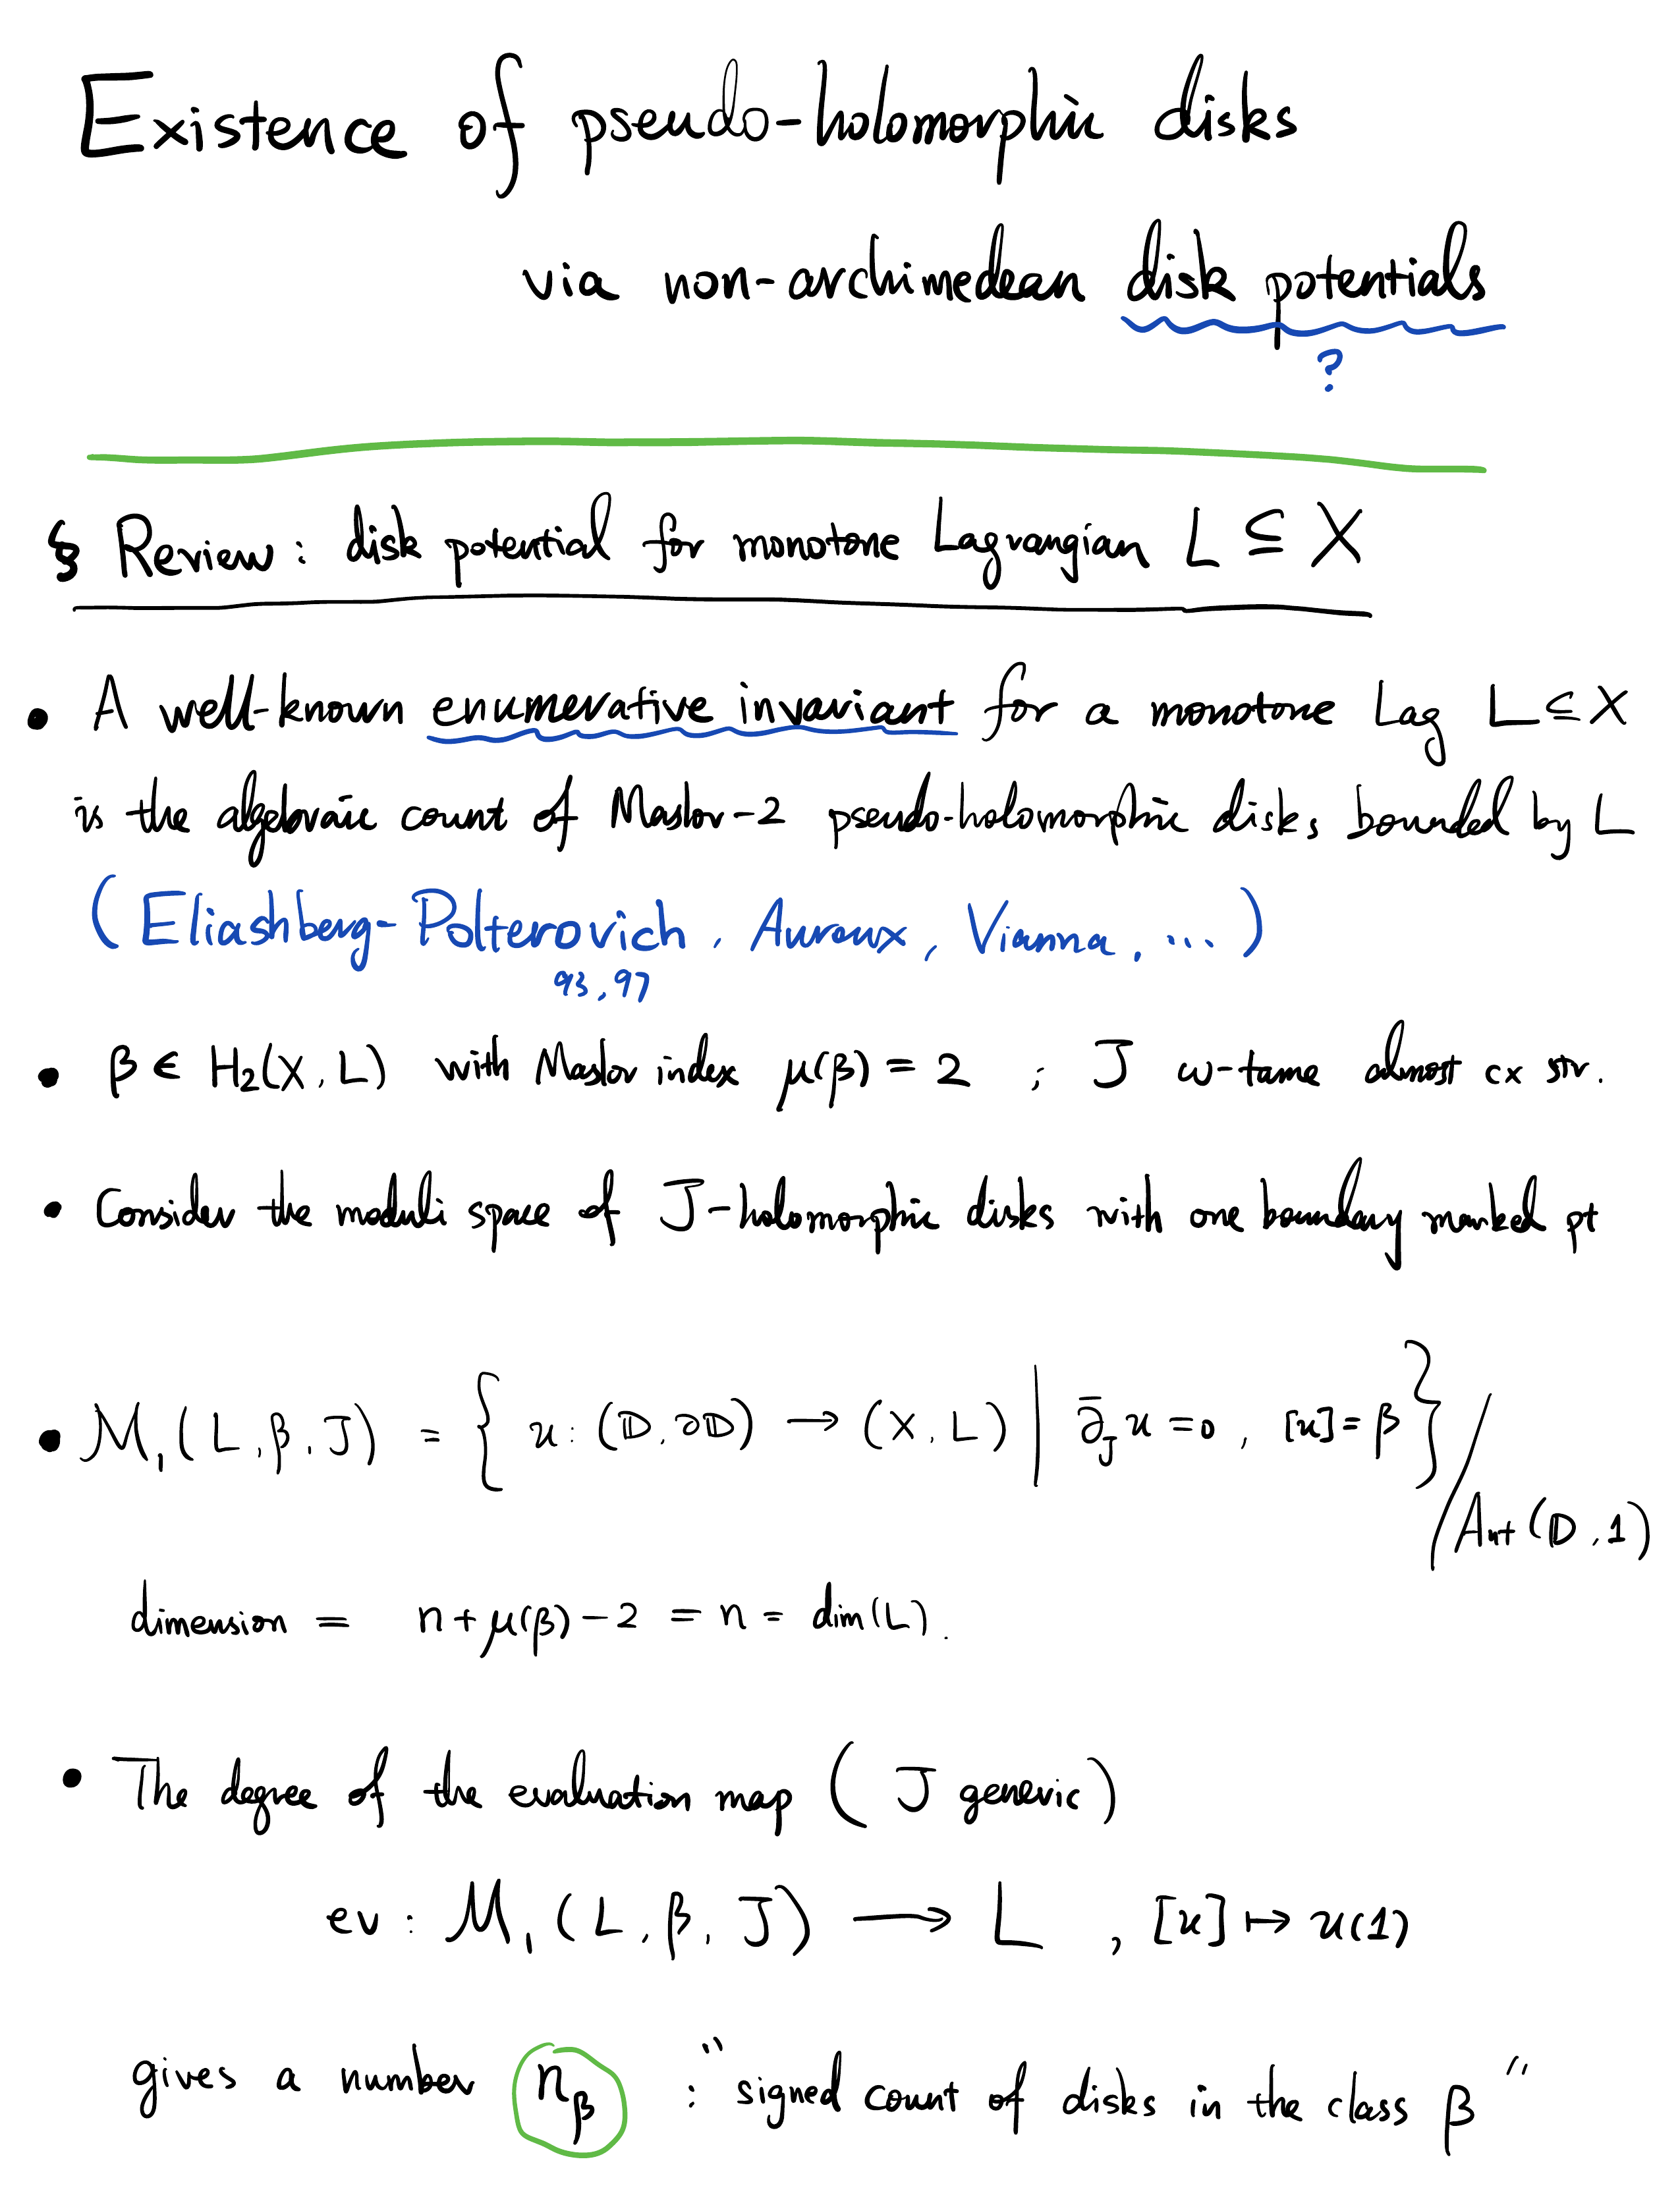 Existence of pseudo-holomorphic disks
via non-archimedean disk potentials
?
§ Review: disk potential for monotone Lagrangian L ⊆ X
• A well-known enumerative invariant for a monotone Lag L ⊆ X
is the algebraic count of Maslov-2 pseudo-holomorphic disks bounded by L
(Eliashberg-Polterovich, Auroux, Vianna, ...)
93, 97
• β ∈ H₂(X, L) with Maslov index μ(β) = 2 ; J ω-tame almost cx str.
• Consider the moduli space of J-holomorphic disks with one boundary marked pt
• M₁(L, β, J) = { u: (𝔻, ∂𝔻) → (X, L) | ∂̄_J u = 0, [u] = β } / Aut(𝔻, 1)
dimension = n + μ(β) - 2 = n = dim(L).
• The degree of the evaluation map (J generic)
ev : M₁(L, β, J) → L , [u] ↦ u(1)
gives a number n_β : "signed count of disks in the class β"